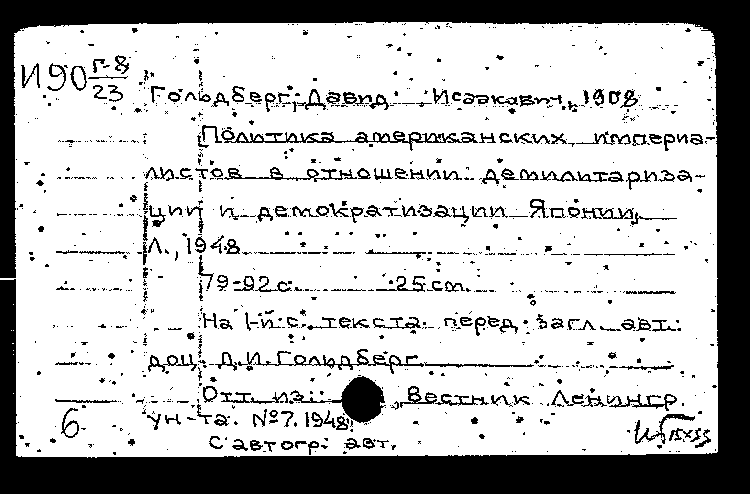 И90 Г-8/23
Гольдберг, Давид Исаакович, 1908
Политика американских империа-
листов в отношении демилитариза-
ции и демократизации Японии,
Л., 1948
79-92 с. 25 cm.
На 1-й с. текста перед загл. авт:
доц. Д.И. Гольдберг
Отт. из: , Вестник Ленингр.
ун-та. №7. 1948
С автогр. авт.
6